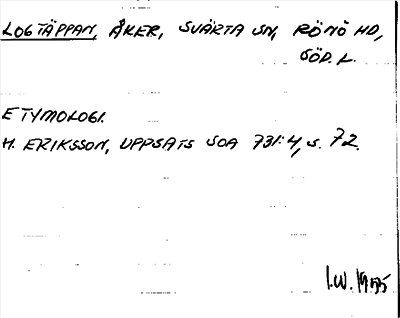 LOGTÄPPAN, ÅKER, SVÄRTA SN, RÖNÖ HD,
SÖD. L.
ETYMOLOGI.
H. ERIKSSON, UPPSATS SOA 731:4, S. 72.
I.W. 1975